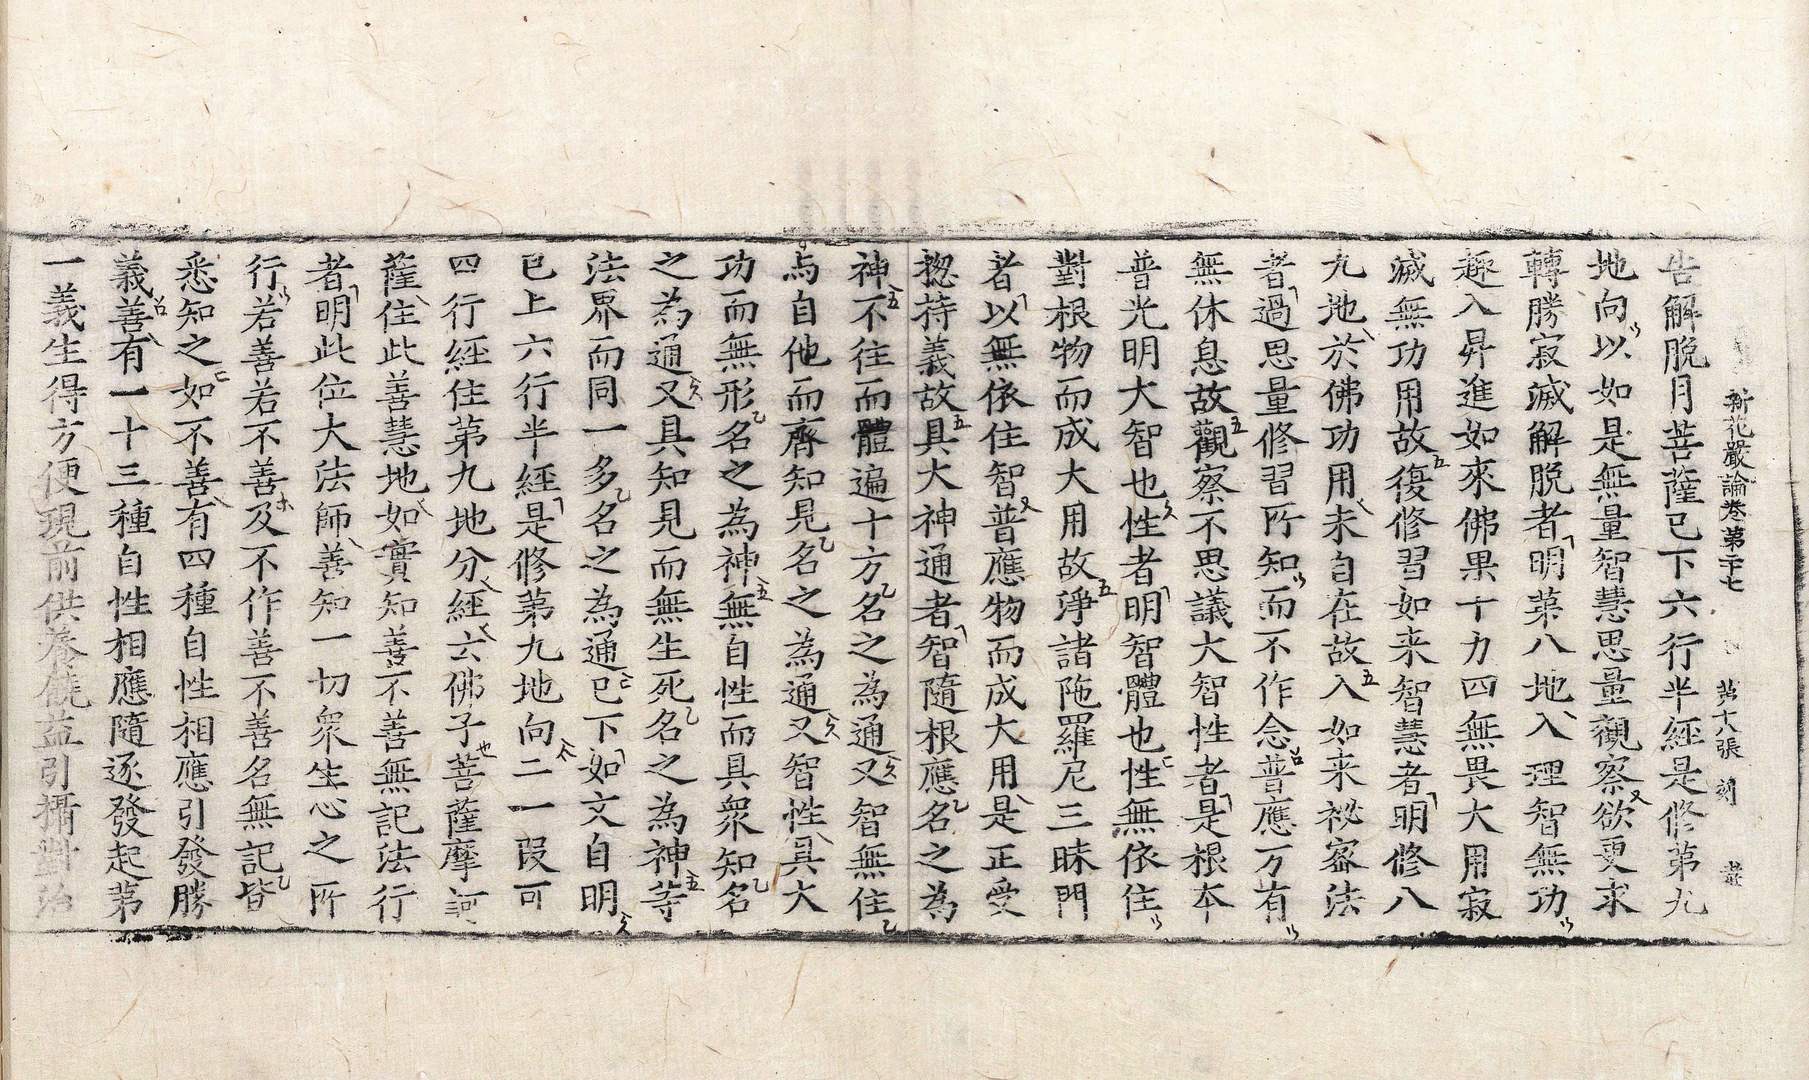 新花嚴論卷第二十七　第十八張
告解脫月菩薩已下六行半經是修第九
地向以如是無量智慧思量觀察欲更求
轉勝寂滅解脫者明苐八地入理智無功
趣入昇進如來佛果十力四無畏大用寂
滅無功用故復修習如来智慧者明修八
九地於佛功用未自在故入如来祕密法
者過思量修習所知而不作念普應万有
無休息故觀察不思議大智性者是根本
普光明大智也性者明智體也性無依住
對根物而成大用故淨諸陁羅尼三昧門
者以無依住智普應物而成大用是正受
揔持義故具大神通者智隨根應名之為
神不往而體遍十方名之為通又智無住
与自他而齊知見名之為通又智性具大
功而無形名之為神無自性而具衆知名
之為通又具知見而無生死名之為神等
法界而同一多名之為通已下如文自明
已上六行半經是修苐九地向二一段可
四行經住第九地分經云佛子菩薩摩訶
薩住此善慧地如實知善不善無記法行
者明此位大法師善知一切衆生心之所
行若善若不善及不作善不善名無記皆
悉知之如不善有四種自性相應引發勝
義善有一十三種自性相應隨逐發起苐
一義生得方便現前供養饒益引攝對治